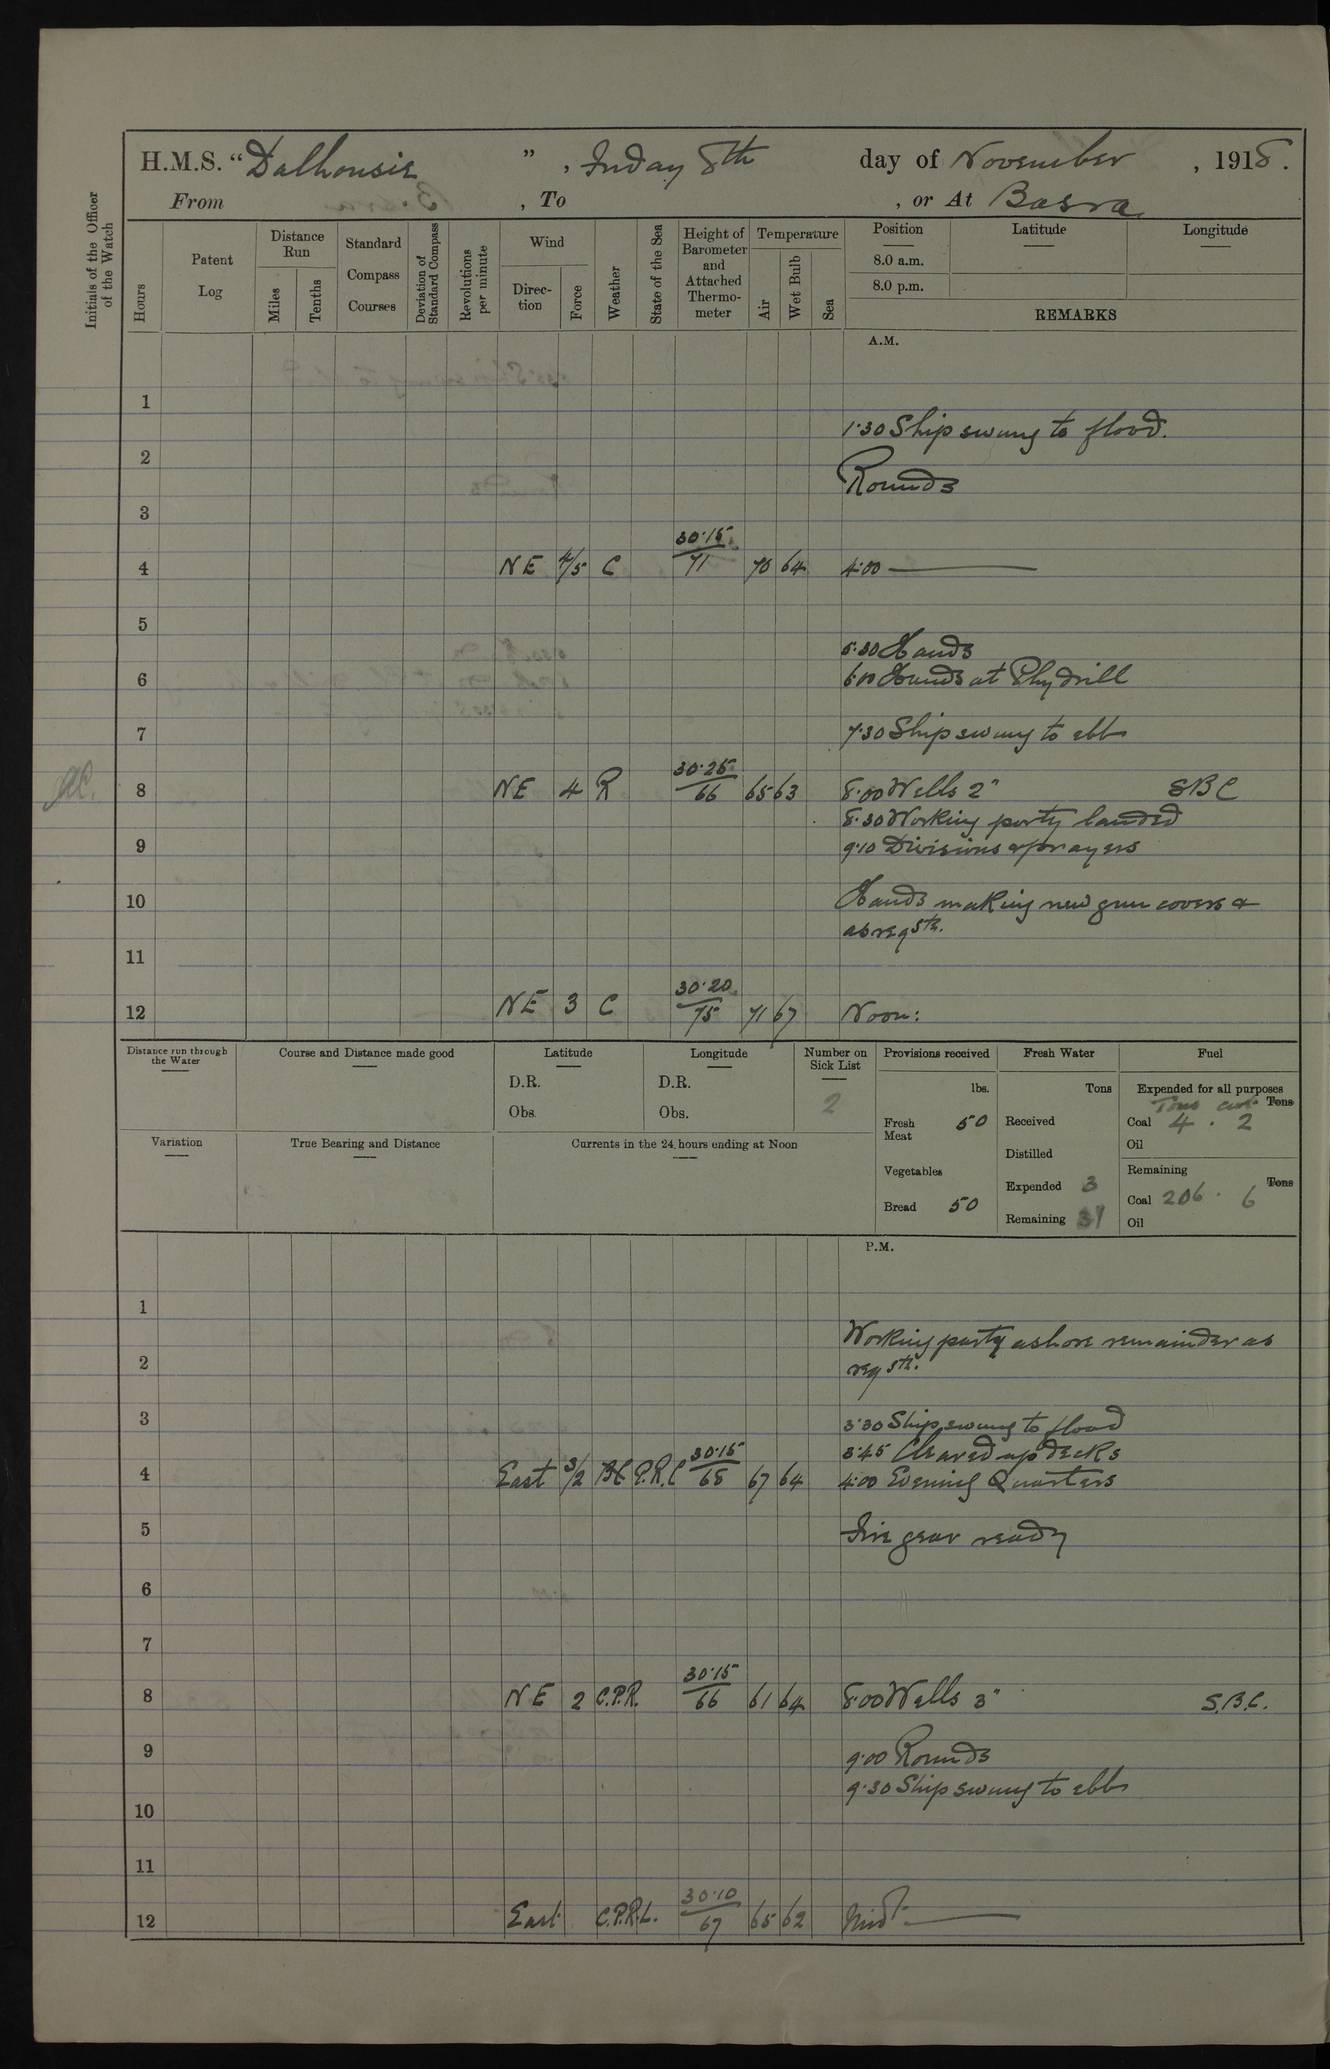 H.M.S. "Dalhousie", Friday 8th day of November, 1918.
From , To , or At Basra
Initials of the Officer of the Watch
Hours
Patent Log
Distance Run
Miles
Tenths
Standard Compass Courses
Deviation of Standard Compass
Revolutions per minute
Wind
Direction
Force
Weather
State of the Sea
Height of Barometer and Attached Thermometer
Temperature
Air
Wet Bulb
Sea
Position
Latitude
Longitude
8.0 a.m.
8.0 p.m.
REMARKS
A.M.
1
1.30 Ship swung to flood.
2
Rounds
3
4 NE 4/5 C 30.15/71 70 64 4.00
5
5.30 Hands
6 6.00 Hands at Phy drill
7 7.30 Ship swung to ebb
8 NE 4 R 30.25/66 65 63 8.00 Wells 2" SBC
8.30 Working party landed
9 9.10 Divisions & prayers
10 Hands making new gun covers &
as reqste.
11
12 NE 3 C 30.20/75 71 67 Noon:
Distance run through the Water
Course and Distance made good
Latitude
D.R.
Obs.
Longitude
D.R.
Obs.
Number on Sick List
2
Provisions received
lbs.
Fresh Meat 50
Vegetables
Bread 50
Fresh Water
Tons
Received
Distilled
Expended 3
Remaining
Fuel
Expended for all purposes
Tons cwt Tons
Coal 4 . 2
Oil
Remaining
Tons
Coal 206 . 6
Oil
Variation
True Bearing and Distance
Currents in the 24 hours ending at Noon
P.M.
1
Working party ashore remainder as
2 reqste.
3 3.30 Ship swung to flood
3.45 Cleared up decks
4 East 3/2 BC P.R.C 30.15/68 67 64 4.00 Evening Quarters
5 Fire gear ready
6
7
8 NE 2 C.P.R. 30.15/66 61 64 8.00 Wells 3" S.B.C.
9 9.00 Rounds
9.30 Ship swung to ebb
10
11
12 East C.P.R.L. 30.10/67 65 62 Midt.